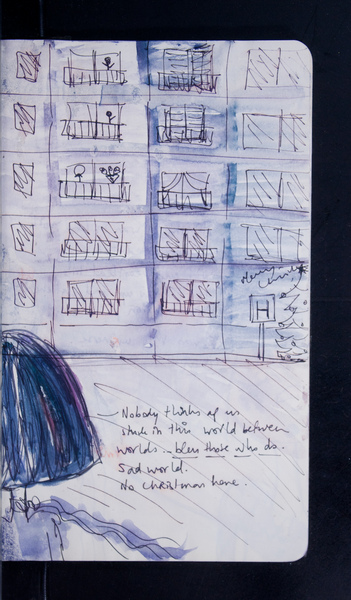 Merry
H
Nobody thinks of us
stuck in this world between
worlds... bless those who do.
Sad world.
No Christmas here.